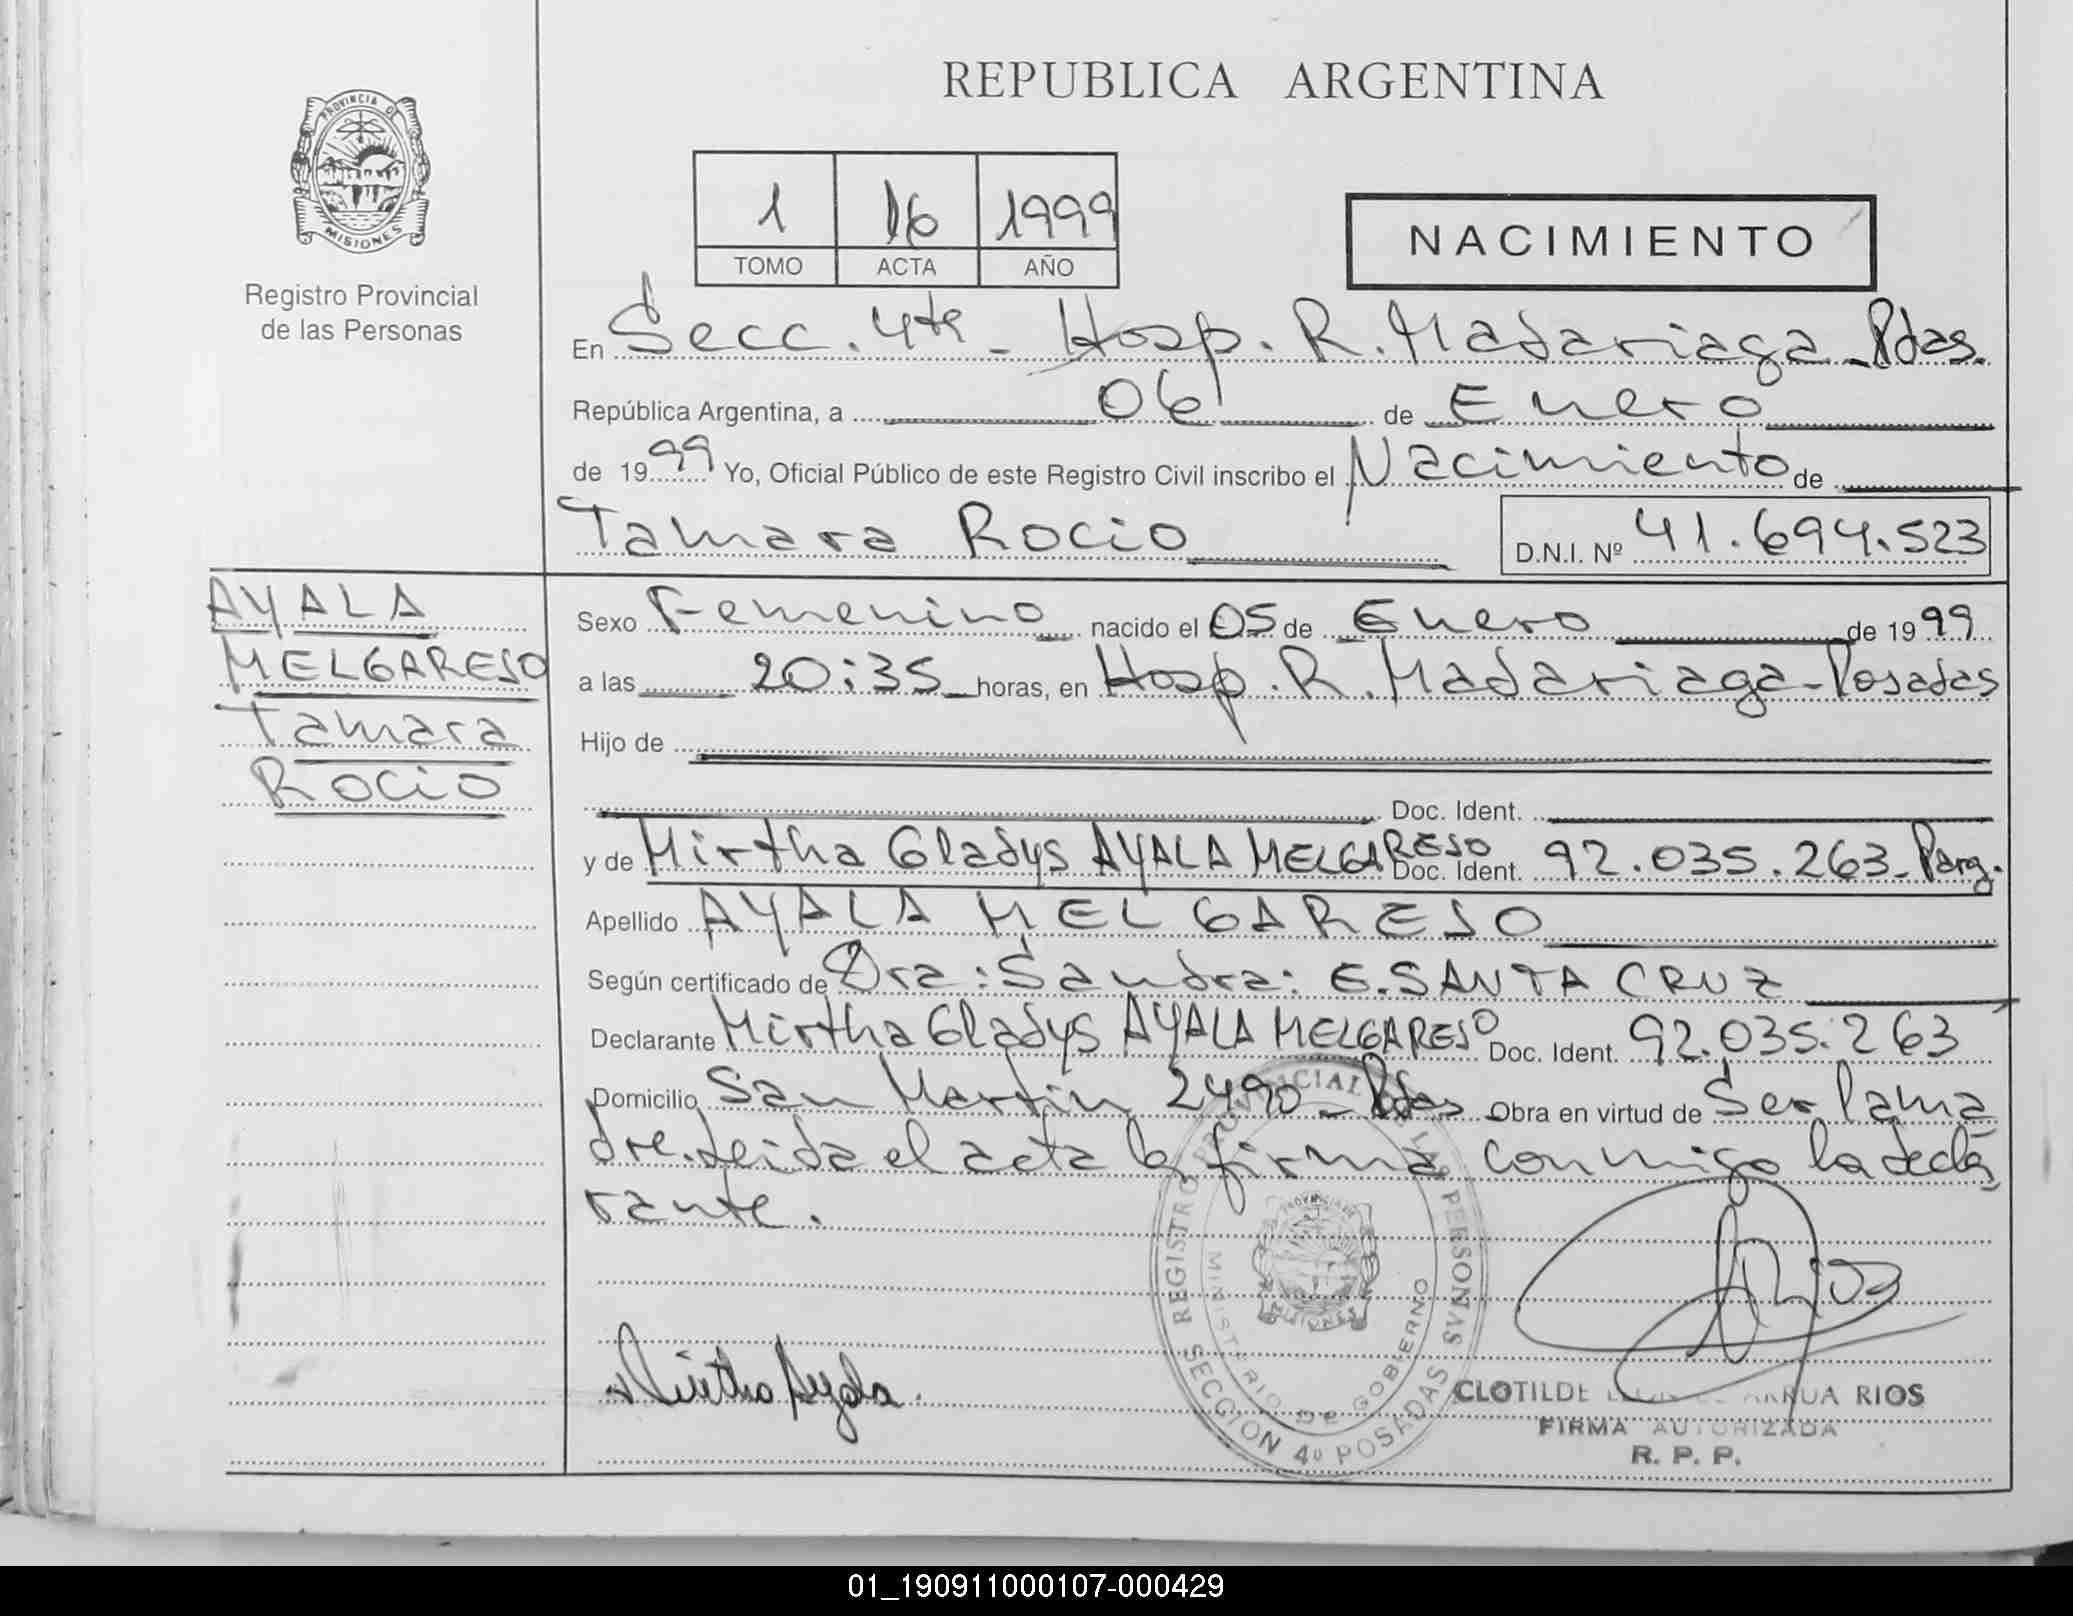 REPUBLICA ARGENTINA
PROVINCIA DE
MISIONES
Registro Provincial
de las Personas
1 16 1999
TOMO ACTA AÑO
NACIMIENTO
En Secc. 4ta - Hosp. R. Madariaga - Pdas.
República Argentina, a 06 de Enero
de 1999 Yo, Oficial Público de este Registro Civil inscribo el Nacimiento de
Tamara Rocio
D.N.I. Nº 41.694.523
AYALA
MELGARESO
Tamara
Rocio
Sexo Femenino nacido el 05 de Enero de 1999
a las 20:35 horas, en Hosp. R. Madariaga - Posadas
Hijo de
Doc. Ident.
y de Mirtha Gladys AYALA MELGARESO Doc. Ident. 92.035.263 - Parg.
Apellido AYALA MELGARESO
Según certificado de Dra: Sandra: E. SANTA CRUZ
Declarante Mirtha Gladys AYALA MELGARESO Doc. Ident. 92.035.263
Domicilio San Martin 2490 - Pdas Obra en virtud de Ser la ma
dre. Leida el acta la firma conmigo la decla
rante.
REGISTRO PROVINCIAL DE LAS PERSONAS
MINISTERIO DE GOBIERNO
SECCION 4º POSADAS
Mirtha Ayala.
CLOTILDE RIOS
FIRMA AUTORIZADA
R. P. P.
01_190911000107-000429